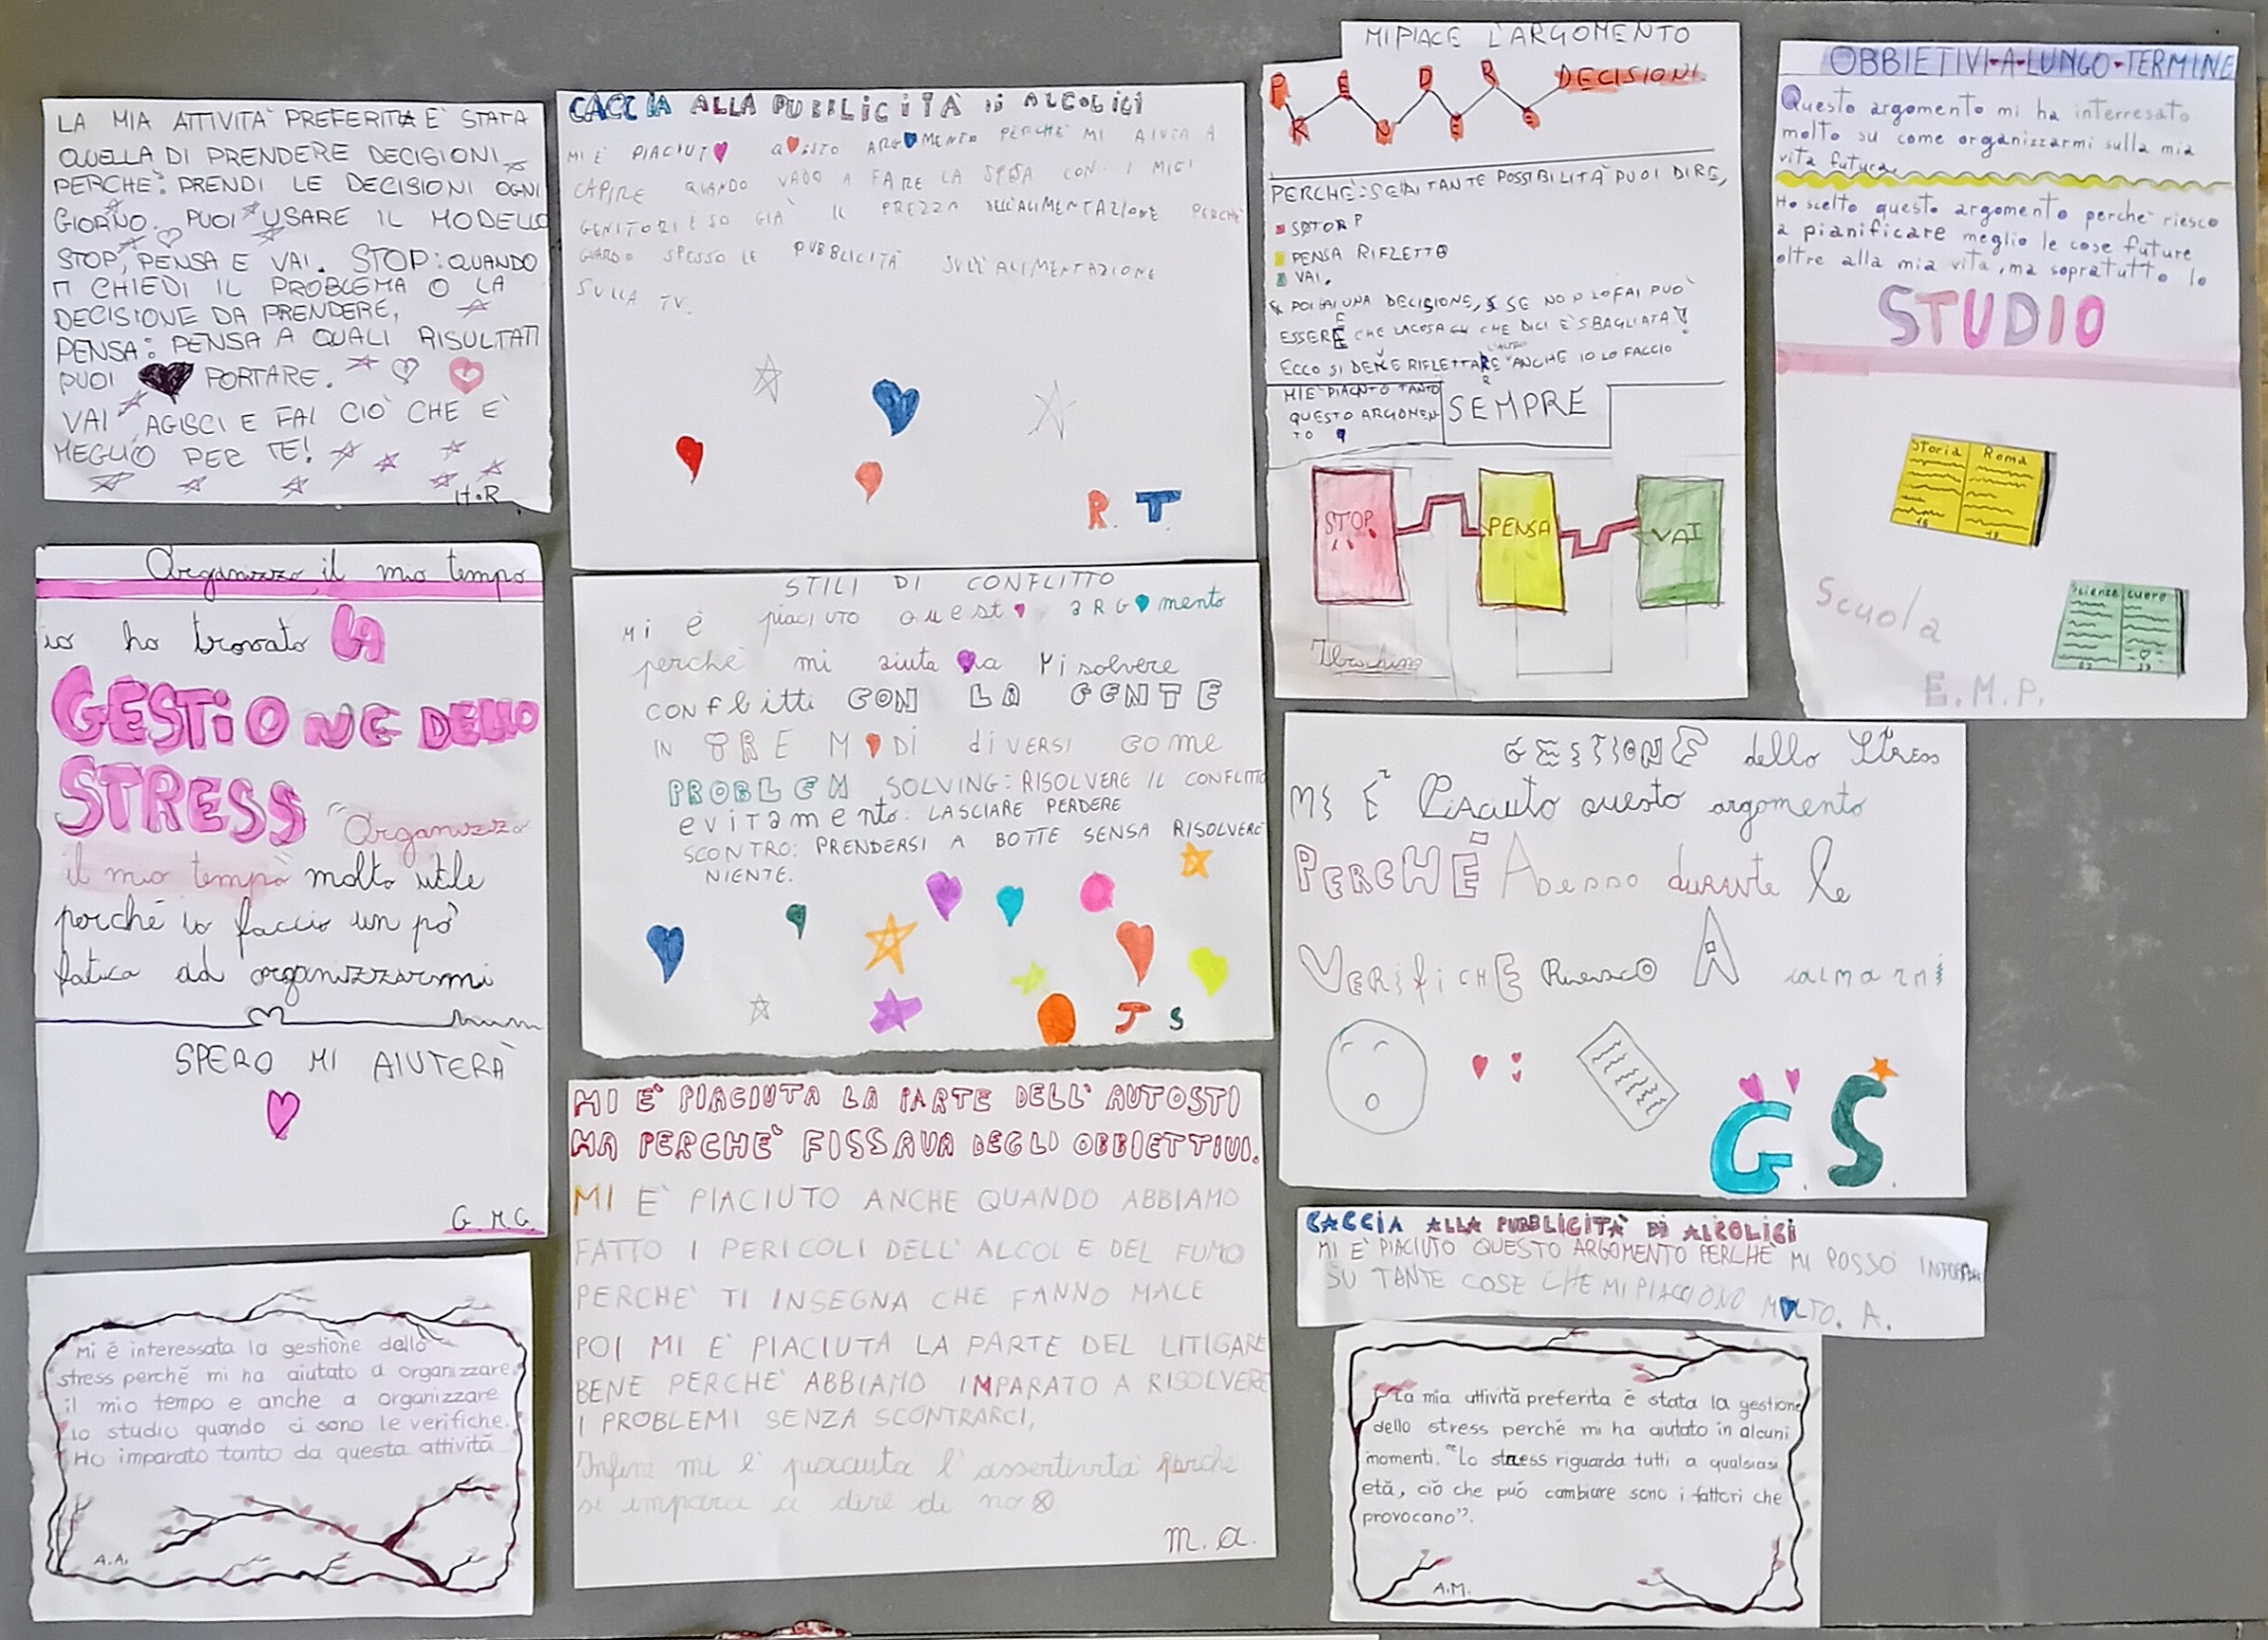 LA MIA ATTIVITA' PREFERITA E' STATA
QUELLA DI PRENDERE DECISIONI
PERCHE': PRENDI LE DECISIONI OGNI
GIORNO. PUOI USARE IL MODELLO
STOP, PENSA E VAI. STOP: QUANDO
TI CHIEDI IL PROBLEMA O LA
DECISIONE DA PRENDERE,
PENSA: PENSA A QUALI RISULTATI
PUOI PORTARE.
VAI, AGISCI E FAI CIÒ CHE E'
MEGLIO PER TE!
H.R
Organizzo il mio tempo
io ho trovato LA
GESTIONE DELLO
STRESS "Organizzo
il mio tempo molto utile
perché io faccio un pò
fatica ad organizzarmi
SPERO MI AIUTERÀ
G.M.G.
Mi è interessata la gestione dello
stress perché mi ha aiutato a organizzare
il mio tempo e anche a organizzare
lo studio quando ci sono le verifiche.
Ho imparato tanto da questa attività
A.A.
CACCIA ALLA PUBBLICITÀ DI ALCOLICI
MI È PIACIUTO QUESTO ARGOMENTO PERCHÈ MI AIUTA A
CAPIRE QUANDO VADO A FARE LA SPESA CON I MIEI
GENITORI E SO GIÀ IL PREZZO DELL'ALIMENTAZIONE PERCHÈ
GUARDO SPESSO LE PUBBLICITÀ SULL'ALIMENTAZIONE
SULLA TV.
R. T.
STILI DI CONFLITTO
Mi è piaciuto questo argomento
perchè mi aiuta a risolvere
conflitti CON LA GENTE
IN TRE MODI diversi come
PROBLEM SOLVING: RISOLVERE IL CONFLITTO
evitamento: LASCIARE PERDERE
SCONTRO: PRENDERSI A BOTTE SENSA RISOLVERE
NIENTE.
J S
MI E' PIACIUTA LA PARTE DELL'AUTOSTI
MA PERCHE' FISSAVA DEGLI OBBIETTIVI.
MI E' PIACIUTO ANCHE QUANDO ABBIAMO
FATTO I PERICOLI DELL'ALCOL E DEL FUMO
PERCHE' TI INSEGNA CHE FANNO MALE
POI MI E' PIACIUTA LA PARTE DEL LITIGARE
BENE PERCHE' ABBIAMO IMPARATO A RISOLVERE
I PROBLEMI SENZA SCONTRARCI,
Infine mi è piaciuta l'assertività perche
si impara a dire di no
m.a.
MI PIACE L'ARGOMENTO
PRENDERE DECISIONI
PERCHÈ: SE HAI TANTE POSSIBILITÀ PUOI DIRE,
PENSA RIFLETTO
VAI.
POI FAI UNA DECISIONE, SE NO LO FAI PUÒ
ESSERE CHE LA COSA CHE DICI È SBAGLIATA!
ECCO SI DEVE RIFLETTERE ANCHE IO LO FACCIO
SEMPRE
MI È PIACIUTO TANTO
QUESTO ARGOMEN
TO
STOP
PENSA
VAI
OBBIETIVI A LUNGO TERMINE
Questo argomento mi ha interresato
molto su come organizzarmi sulla mia
vita futura.
Ho scelto questo argomento perchè riesco
a pianificare meglio le cose future
oltre alla mia vita, ma sopratutto lo
STUDIO
Storia Roma
Scienze cuore
Scuola
E.M.P.
GESTIONE dello Stress
MI È Piaciuto questo argomento
PERCHÉ Adesso durante le
VERIFICHE Riesco A calmarmi
G. S.
CACCIA ALLA PUBBLICITÀ DI ALCOLICI
MI E' PIACIUTO QUESTO ARGOMENTO PERCHE' MI POSSO
SU TANTE COSE CHE MI PIACCIONO MOLTO. A.
"La mia attività preferita è stata la gestione
dello stress perché mi ha aiutato in alcuni
momenti. "Lo stress riguarda tutti a qualsiasi
età, ciò che può cambiare sono i fattori che
provocano".
A.M.